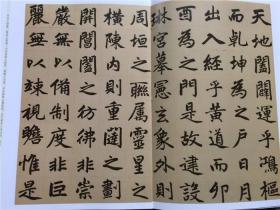 天地闔闢運乎鴻樞
而乾坤為之戶日月
出入經乎黃道而卯
酉為之門是故建設
琳宮摹憲玄象外則
周垣之聯屬靈星之
橫陳內則重闥之劃
開閶闔之彷彿非崇
嚴無以備制度非巨
麗無以竦視瞻惟是